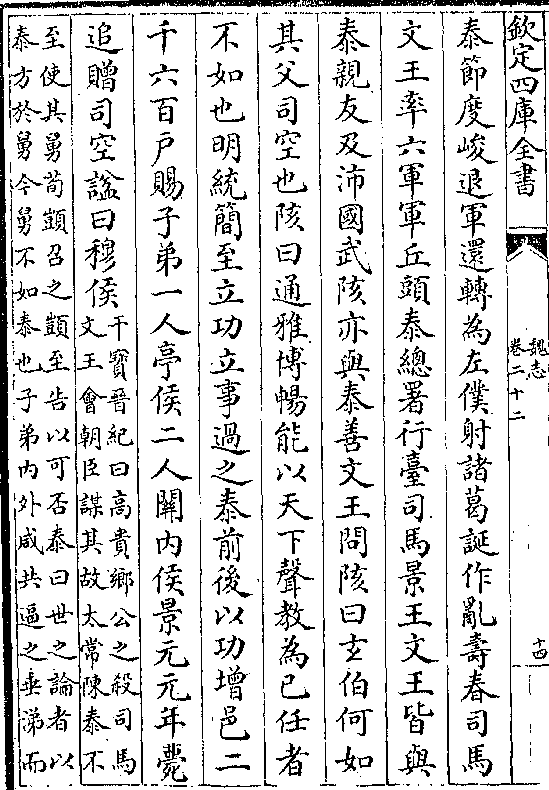 欽定四庫全書
魏志
卷二十二
十四
泰節度峻退軍還轉為左僕射諸葛誕作亂壽春司馬
文王率六軍軍丘頭泰總署行臺司馬景王文王皆與
泰親友及沛國武陔亦與泰善文王問陔曰玄伯何如
其父司空也陔曰通雅博暢能以天下聲教為已任者
不如也明統簡至立功立事過之泰前後以功增邑二
千六百戶賜子弟一人亭侯二人關内侯景元元年薨
追贈司空謚曰穆侯
干寳晉紀曰高貴鄉公之殺司馬
文王會朝臣謀其故太常陳泰不
至使其舅荀顗召之顗至告以可否泰曰世之論者以
泰方於舅今舅不如泰也子弟内外咸共逼之垂涕而